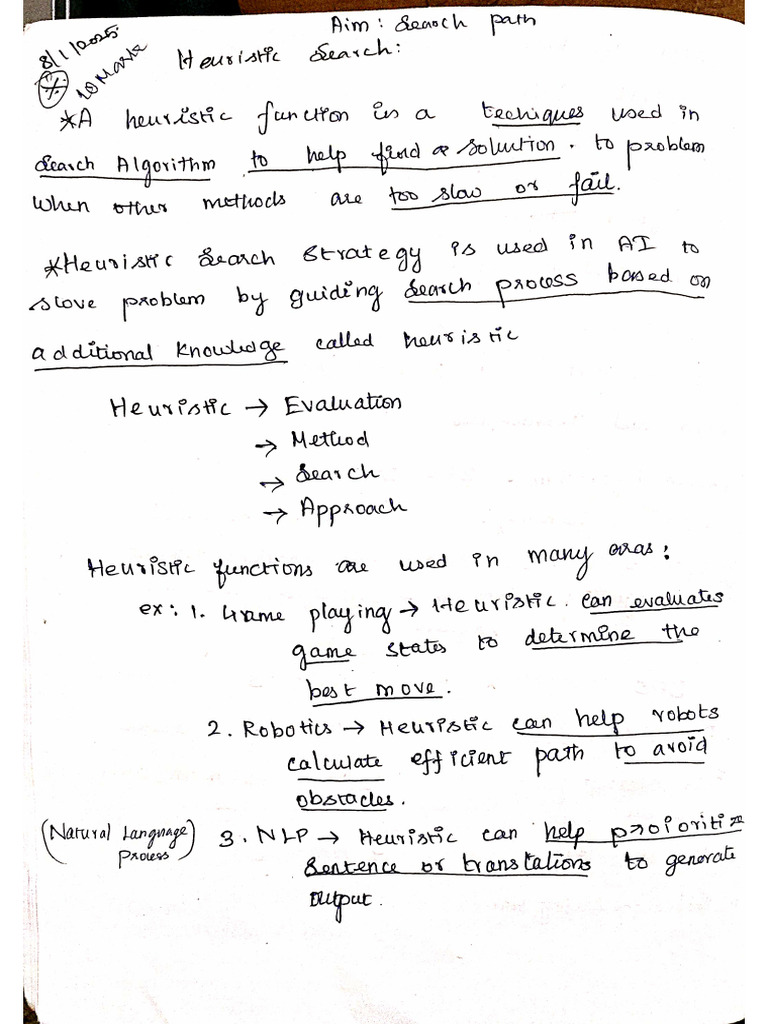 Aim: Search path
8/1/2025
10 Marks
Heuristic Search:
*A heuristic function is a techiques used in
Search Algorithm to help find a solution. to problem
when other methods are too slow or fail.
*Heuristic Search Strategy is used in AI to
slove problem by guiding Search process based on
additional knowledge called heuristic
Heuristic → Evaluation
→ Method
→ Search
→ Approach
Heuristic functions are used in many aras:
ex: 1. Game playing → Heuristic can evaluates
game states to determine the
best move.
2. Robotics → Heuristic can help robots
calculate efficient path to avoid
obstacles.
(Natural Language
Process)
3. NLP → Heuristic can help proioritize
Sentence or translations to generate
output.